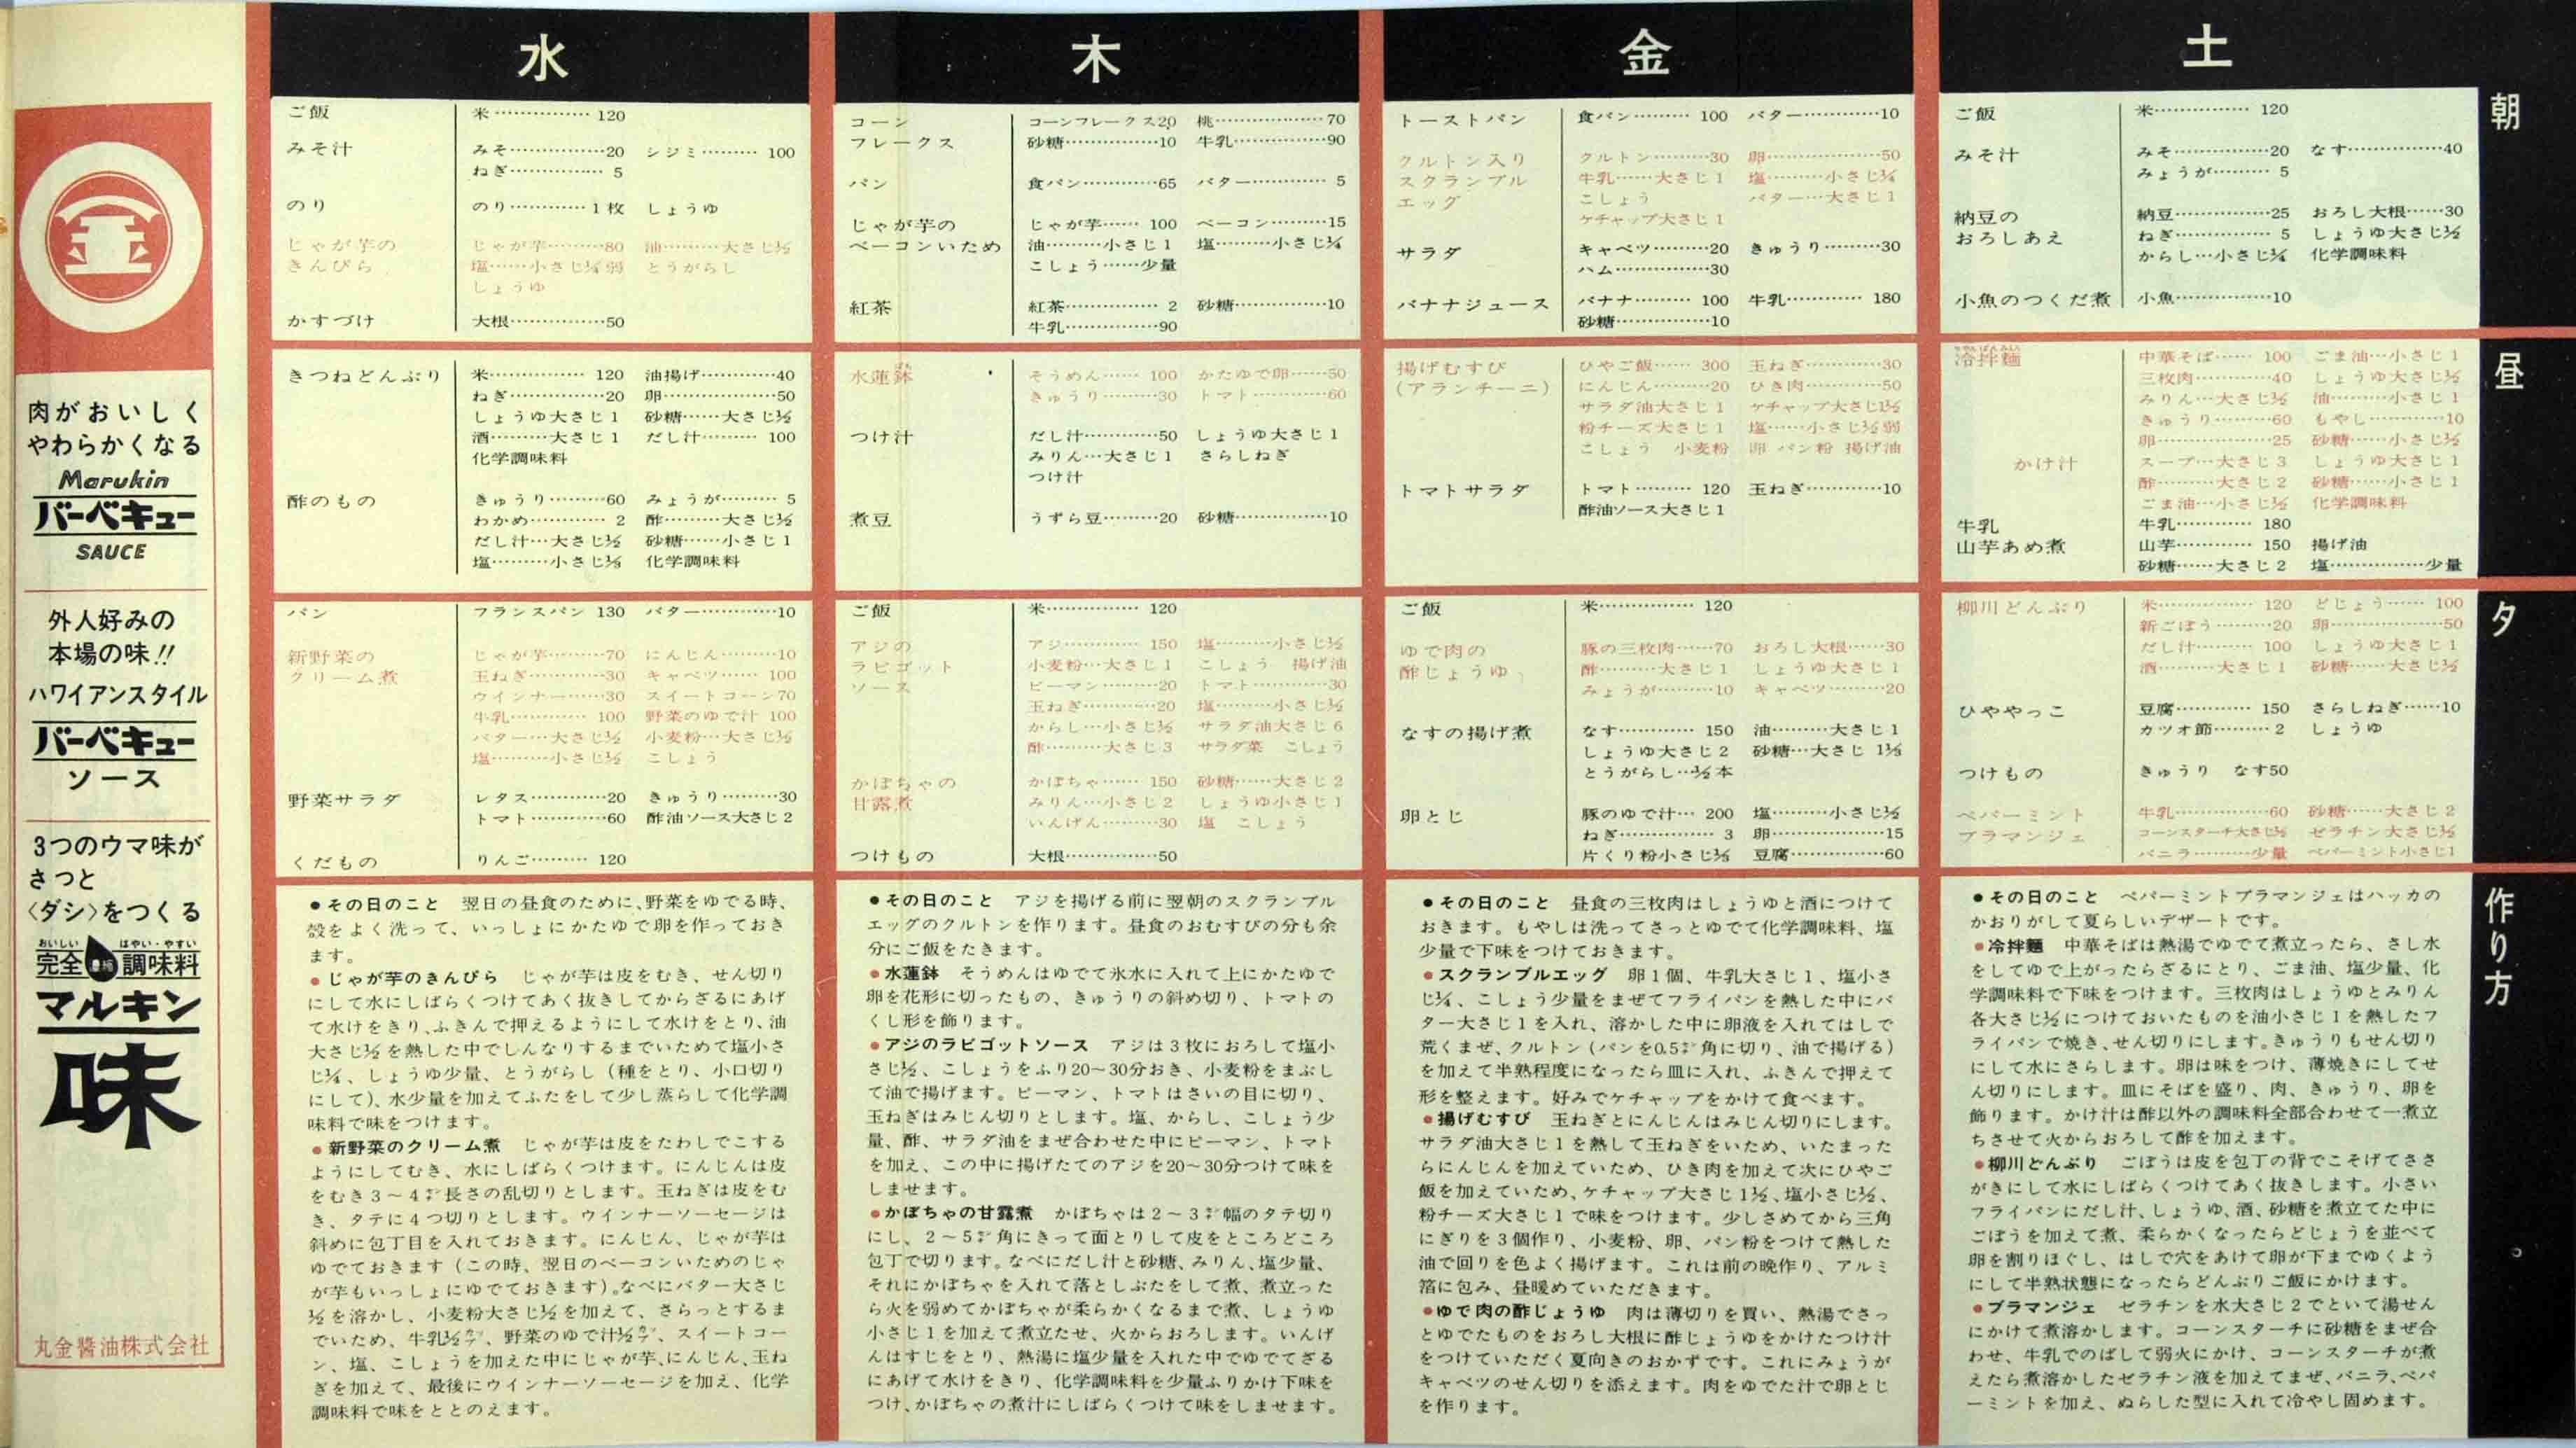 肉がおいしく
やわらかくなる
Marukin
バーベキュー
SAUCE
外人好みの
本場の味!!
ハワイアンスタイル
バーベキュー
ソース
3つのウマ味が
さっと
〈ダシ〉をつくる
おいしい はやい・やすい
完全 濃縮 調味料
マルキン
味
丸金醤油株式会社
水
ご飯 米……………120
みそ汁 みそ……………20 シジミ………100
ねぎ……………5
のり のり…………1枚 しょうゆ
じゃが芋の じゃが芋………80 油………大さじ½
きんぴら 塩……小さじ¼弱 とうがらし
しょうゆ
かすづけ 大根……………50
きつねどんぶり 米……………120 油揚げ…………40
ねぎ……………20 卵………………50
しょうゆ大さじ1 砂糖……大さじ½
酒………大さじ1 だし汁………100
化学調味料
酢のもの きゅうり………60 みょうが………5
わかめ…………2 酢………大さじ½
だし汁…大さじ½ 砂糖……小さじ1
塩………小さじ⅕ 化学調味料
パン フランスパン 130 バター…………10
新野菜の じゃが芋………70 にんじん………10
クリーム煮 玉ねぎ…………30 キャベツ……100
ウインナー……30 スイートコーン70
牛乳…………100 野菜のゆで汁 100
バター…大さじ½ 小麦粉…大さじ½
塩………小さじ½ こしょう
野菜サラダ レタス…………20 きゅうり………30
トマト…………60 酢油ソース大さじ2
くだもの りんご………120
●その日のこと 翌日の昼食のために、野菜をゆでる時、
殻をよく洗って、いっしょにかたゆで卵を作っておき
ます。
●じゃが芋のきんぴら じゃが芋は皮をむき、せん切り
にして水にしばらくつけてあく抜きしてからざるにあげ
て水けをきり、ふきんで押えるようにして水けをとり、油
大さじ½を熱した中でしんなりするまでいためて塩小さ
じ¼、しょうゆ少量、とうがらし（種をとり、小口切り
にして)、水少量を加えてふたをして少し蒸らして化学調
味料で味をつけます。
●新野菜のクリーム煮 じゃが芋は皮をたわしでこする
ようにしてむき、水にしばらくつけます。にんじんは皮
をむき3〜4㌢長さの乱切りとします。玉ねぎは皮をむ
き、タテに4つ切りとします。ウインナーソーセージは
斜めに包丁目を入れておきます。にんじん、じゃが芋は
ゆでておきます（この時、翌日のベーコンいためのじゃ
が芋もいっしょにゆでておきます)。なべにバター大さじ
½を溶かし、小麦粉大さじ½を加えて、さらっとするま
でいため、牛乳½カップ、野菜のゆで汁½カップ、スイートコー
ン、塩、こしょうを加えた中にじゃが芋、にんじん、玉ね
ぎを加えて、最後にウインナーソーセージを加え、化学
調味料で味をととのえます。
木
コーン コーンフレークス20 桃………………70
フレークス 砂糖……………10 牛乳……………90
パン 食パン…………65 バター…………5
じゃが芋の じゃが芋……100 ベーコン………15
ベーコンいため 油………小さじ1 塩………小さじ¼
こしょう……少量
紅茶 紅茶……………2 砂糖……………10
牛乳……………90
水蓮鉢 そうめん……100 かたゆで卵……50
きゅうり………30 トマト…………60
つけ汁 だし汁…………50 しょうゆ大さじ1
みりん…大さじ1 さらしねぎ
つけ汁
煮豆 うずら豆………20 砂糖……………10
ご飯 米……………120
アジの アジ…………150 塩………小さじ½
ラビゴット 小麦粉…大さじ1 こしょう 揚げ油
ソース ピーマン………20 トマト…………30
玉ねぎ…………20 塩………小さじ½
からし…小さじ½ サラダ油大さじ6
酢………大さじ3 サラダ菜 こしょう
かぼちゃの かぼちゃ……150 砂糖……大さじ2
甘露煮 みりん…小さじ2 しょうゆ小さじ1
いんげん………30 塩 こしょう
つけもの 大根……………50
●その日のこと アジを揚げる前に翌朝のスクランブル
エッグのクルトンを作ります。昼食のおむすびの分も余
分にご飯をたきます。
●水蓮鉢 そうめんはゆでて氷水に入れて上にかたゆで
卵を花形に切ったもの、きゅうりの斜め切り、トマトの
くし形を飾ります。
●アジのラビゴットソース アジは3枚におろして塩小
さじ½、こしょうをふり20〜30分おき、小麦粉をまぶし
て油で揚げます。ピーマン、トマトはさいの目に切り、
玉ねぎはみじん切りとします。塩、からし、こしょう少
量、酢、サラダ油をまぜ合わせた中にピーマン、トマト
を加え、この中に揚げたてのアジを20〜30分つけて味を
しませます。
●かぼちゃの甘露煮 かぼちゃは2〜3㌢幅のタテ切り
にし、2〜5㌢角にきって面とりして皮をところどころ
包丁で切ります。なべにだし汁と砂糖、みりん、塩少量、
それにかぼちゃを入れて落としぶたをして煮、煮立った
ら火を弱めてかぼちゃが柔らかくなるまで煮、しょうゆ
小さじ1を加えて煮立たせ、火からおろします。いんげ
んはすじをとり、熱湯に塩少量を入れた中でゆでてざる
にあげて水けをきり、化学調味料を少量ふりかけ下味を
つけ、かぼちゃの煮汁にしばらくつけて味をしませます。
金
トーストパン 食パン………100 バター…………10
クルトン入り クルトン………30 卵………………50
スクランブル 牛乳……大さじ1 塩………小さじ¼
エッグ こしょう バター…大さじ1
ケチャップ大さじ1
サラダ キャベツ………20 きゅうり………30
ハム……………30
バナナジュース バナナ………100 牛乳…………180
砂糖……………10
揚げむすび ひやご飯……300 玉ねぎ…………30
(アランチーニ) にんじん………20 ひき肉…………50
サラダ油大さじ1 ケチャップ大さじ1½
粉チーズ大さじ1 塩……小さじ½弱
こしょう 小麦粉 卵 パン粉 揚げ油
トマトサラダ トマト………120 玉ねぎ…………10
酢油ソース大さじ1
ご飯 米……………120
ゆで肉の 豚の三枚肉……70 おろし大根……30
酢じょうゆ 酢………大さじ1 しょうゆ大さじ1
みょうが………10 キャベツ………20
なすの揚げ煮 なす…………150 油………大さじ1
しょうゆ大さじ2 砂糖…大さじ 1⅓
とうがらし…½本
卵とじ 豚のゆで汁…200 塩………小さじ½
ねぎ……………3 卵………………15
片くり粉小さじ⅔ 豆腐……………60
●その日のこと 昼食の三枚肉はしょうゆと酒につけて
おきます。もやしは洗ってさっとゆでて化学調味料、塩
少量で下味をつけておきます。
●スクランブルエッグ 卵1個、牛乳大さじ1、塩小さ
じ¼、こしょう少量をまぜてフライパンを熱した中にバ
ター大さじ1を入れ、溶かした中に卵液を入れてはしで
荒くまぜ、クルトン（パンを0.5㌢角に切り、油で揚げる）
を加えて半熟程度になったら皿に入れ、ふきんで押えて
形を整えます。好みでケチャップをかけて食べます。
●揚げむすび 玉ねぎとにんじんはみじん切りにします。
サラダ油大さじ1を熱して玉ねぎをいため、いたまった
らにんじんを加えていため、ひき肉を加えて次にひやご
飯を加えていため、ケチャップ大さじ1½、塩小さじ½、
粉チーズ大さじ1で味をつけます。少しさめてから三角
にぎりを3個作り、小麦粉、卵、パン粉をつけて熱した
油で回りを色よく揚げます。これは前の晩作り、アルミ
箔に包み、昼暖めていただきます。
●ゆで肉の酢じょうゆ 肉は薄切りを買い、熱湯でさっ
とゆでたものをおろし大根に酢じょうゆをかけたつけ汁
をつけていただく夏向きのおかずです。これにみょうが
キャベツのせん切りを添えます。肉をゆでた汁で卵とじ
を作ります。
土
ご飯 米……………120
みそ汁 みそ……………20 なす……………40
みょうが………5
納豆の 納豆……………25 おろし大根……30
おろしあえ ねぎ……………5 しょうゆ大さじ½
からし…小さじ¼ 化学調味料
小魚のつくだ煮 小魚……………10
冷拌麺 中華そば……100 ごま油…小さじ1
三枚肉…………40 しょうゆ大さじ½
みりん…大さじ½ 油………小さじ1
きゅうり………60 もやし…………10
卵………………25 砂糖……小さじ⅓
かけ汁 スープ…大さじ3 しょうゆ大さじ1
酢………大さじ2 砂糖……小さじ1
ごま油…小さじ½ 化学調味料
牛乳 牛乳…………180
山芋あめ煮 山芋…………150 揚げ油
砂糖……大さじ2 塩……………少量
柳川どんぶり 米……………120 どじょう……100
新ごぼう………20 卵………………50
だし汁………100 しょうゆ大さじ1
酒………大さじ1 砂糖……大さじ½
ひややっこ 豆腐…………150 さらしねぎ……10
カツオ節………2 しょうゆ
つけもの きゅうり なす50
ペパーミント 牛乳……………60 砂糖……大さじ2
ブラマンジェ コーンスターチ大さじ½ ゼラチン大さじ½
バニラ………少量 ペパーミント小さじ1
●その日のこと ペパーミントブラマンジェはハッカの
かおりがして夏らしいデザートです。
●冷拌麺 中華そばは熱湯でゆでて煮立ったら、さし水
をしてゆで上がったらざるにとり、ごま油、塩少量、化
学調味料で下味をつけます。三枚肉はしょうゆとみりん
各大さじ½につけておいたものを油小さじ1を熱したフ
ライパンで焼き、せん切りにします。きゅうりもせん切り
にして水にさらします。卵は味をつけ、薄焼きにしてせ
ん切りにします。皿にそばを盛り、肉、きゅうり、卵を
飾ります。かけ汁は酢以外の調味料全部合わせて一煮立
ちさせて火からおろして酢を加えます。
●柳川どんぶり ごぼうは皮を包丁の背でこそげてささ
がきにして水にしばらくつけてあく抜きします。小さい
フライパンにだし汁、しょうゆ、酒、砂糖を煮立てた中に
ごぼうを加えて煮、柔らかくなったらどじょうを並べて
卵を割りほぐし、はしで穴をあけて卵が下までゆくよう
にして半熟状態になったらどんぶりご飯にかけます。
●ブラマンジェ ゼラチンを水大さじ2でといて湯せん
にかけて煮溶かします。コーンスターチに砂糖をまぜ合
わせ、牛乳でのばして弱火にかけ、コーンスターチが煮
えたら煮溶かしたゼラチン液を加えてまぜ、バニラ、ペパ
ーミントを加え、ぬらした型に入れて冷やし固めます。
朝
昼
夕
作り方